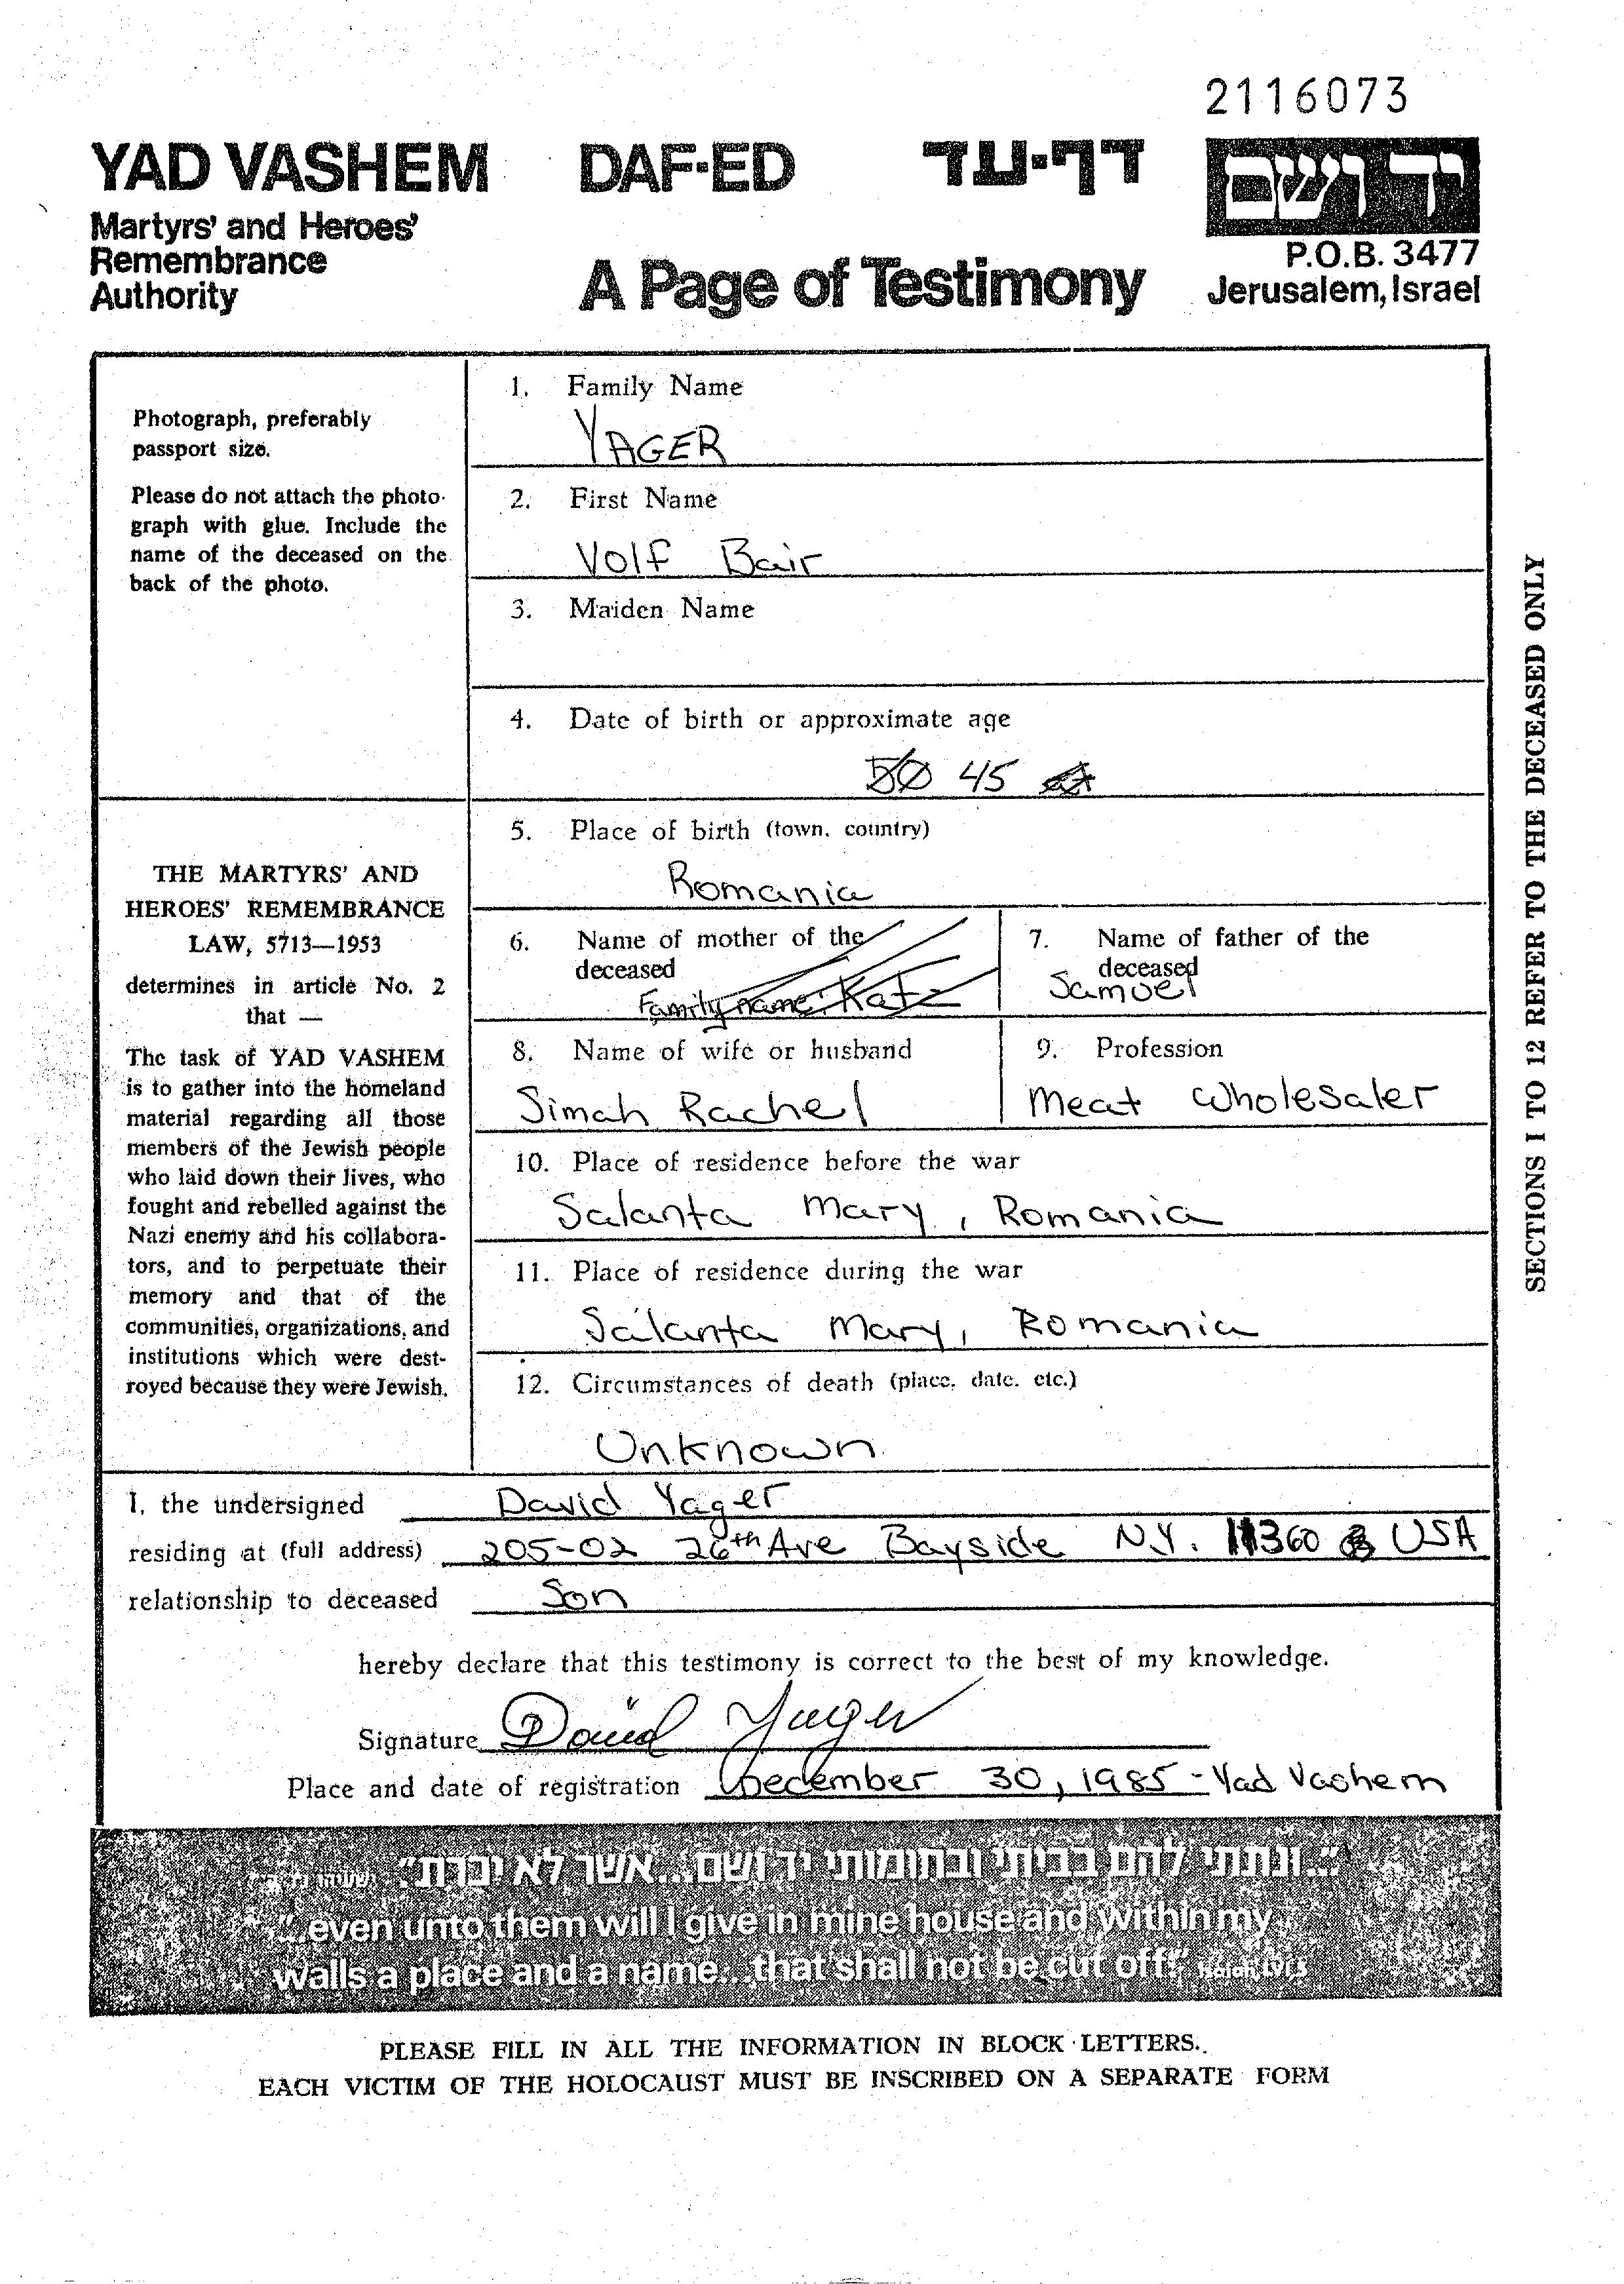 2116073
YAD VASHEM DAF-ED דף-עד ידושם
Martyrs' and Heroes'
Remembrance
Authority
A Page of Testimony
P.O.B. 3477
Jerusalem, Israel
Photograph, preferably
passport size.
Please do not attach the photo-
graph with glue. Include the
name of the deceased on the
back of the photo.
THE MARTYRS' AND
HEROES' REMEMBRANCE
LAW, 5713—1953
determines in article No. 2
that —
The task of YAD VASHEM
is to gather into the homeland
material regarding all those
members of the Jewish people
who laid down their lives, who
fought and rebelled against the
Nazi enemy and his collabora-
tors, and to perpetuate their
memory and that of the
communities, organizations, and
institutions which were dest-
royed because they were Jewish.
1. Family Name
YAGER
2. First Name
Volf Bair
3. Maiden Name
4. Date of birth or approximate age
50 45
5. Place of birth (town, country)
Romania
6. Name of mother of the
deceased
Family name: Katz
7. Name of father of the
deceased
Samuel
8. Name of wife or husband
Simah Rachel
9. Profession
Meat Wholesaler
10. Place of residence before the war
Salanta Mary, Romania
11. Place of residence during the war
Salanta Mary, Romania
12. Circumstances of death (place, date, etc.)
Unknown
SECTIONS 1 TO 12 REFER TO THE DECEASED ONLY
I, the undersigned David Yager
residing at (full address) 205-02 26th Ave Bayside N.Y. 11360 USA
relationship to deceased Son
hereby declare that this testimony is correct to the best of my knowledge.
Signature David Yager
Place and date of registration December 30, 1985 - Yad Vashem
"...ונתתי להם בביתי ובחומותי יד ושם...אשר לא יכרת."
"...even unto them will I give in mine house and within my
walls a place and a name...that shall not be cut off."
PLEASE FILL IN ALL THE INFORMATION IN BLOCK LETTERS.
EACH VICTIM OF THE HOLOCAUST MUST BE INSCRIBED ON A SEPARATE FORM